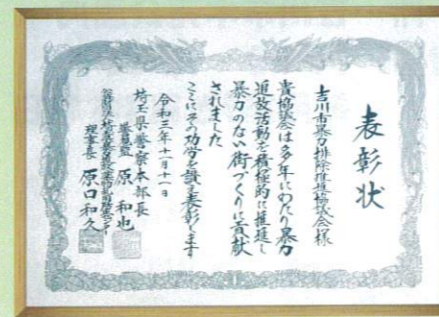 表彰状
吉川市暴力排除推進協議会様
貴協議会は多年にわたり暴力
追放活動を積極的に推進し
暴力のない街づくりに貢献
されました
ここにその功労を讃え表彰します
令和三年十一月十一日
埼玉県警察本部長
警視監 原 和也
理事長 原口和久